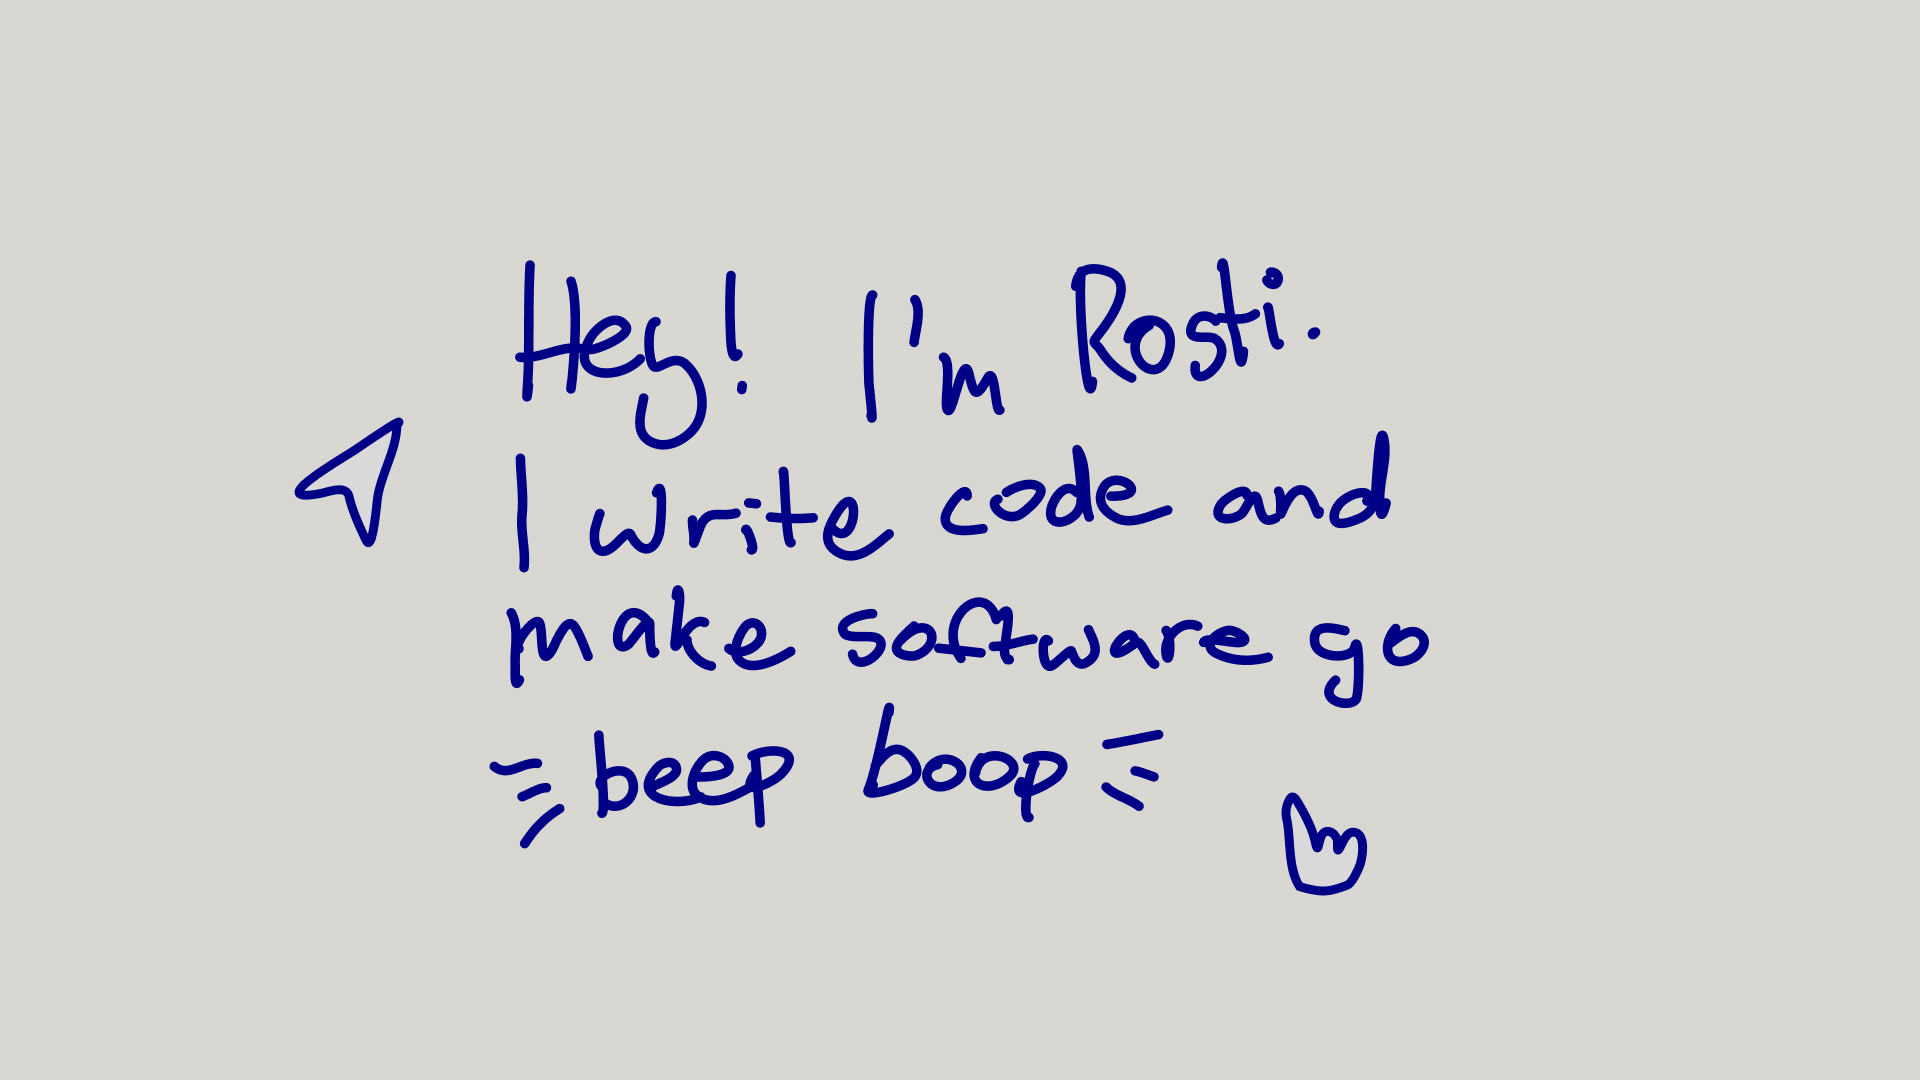 Hey! I'm Rosti.
I write code and
make software go
beep boop